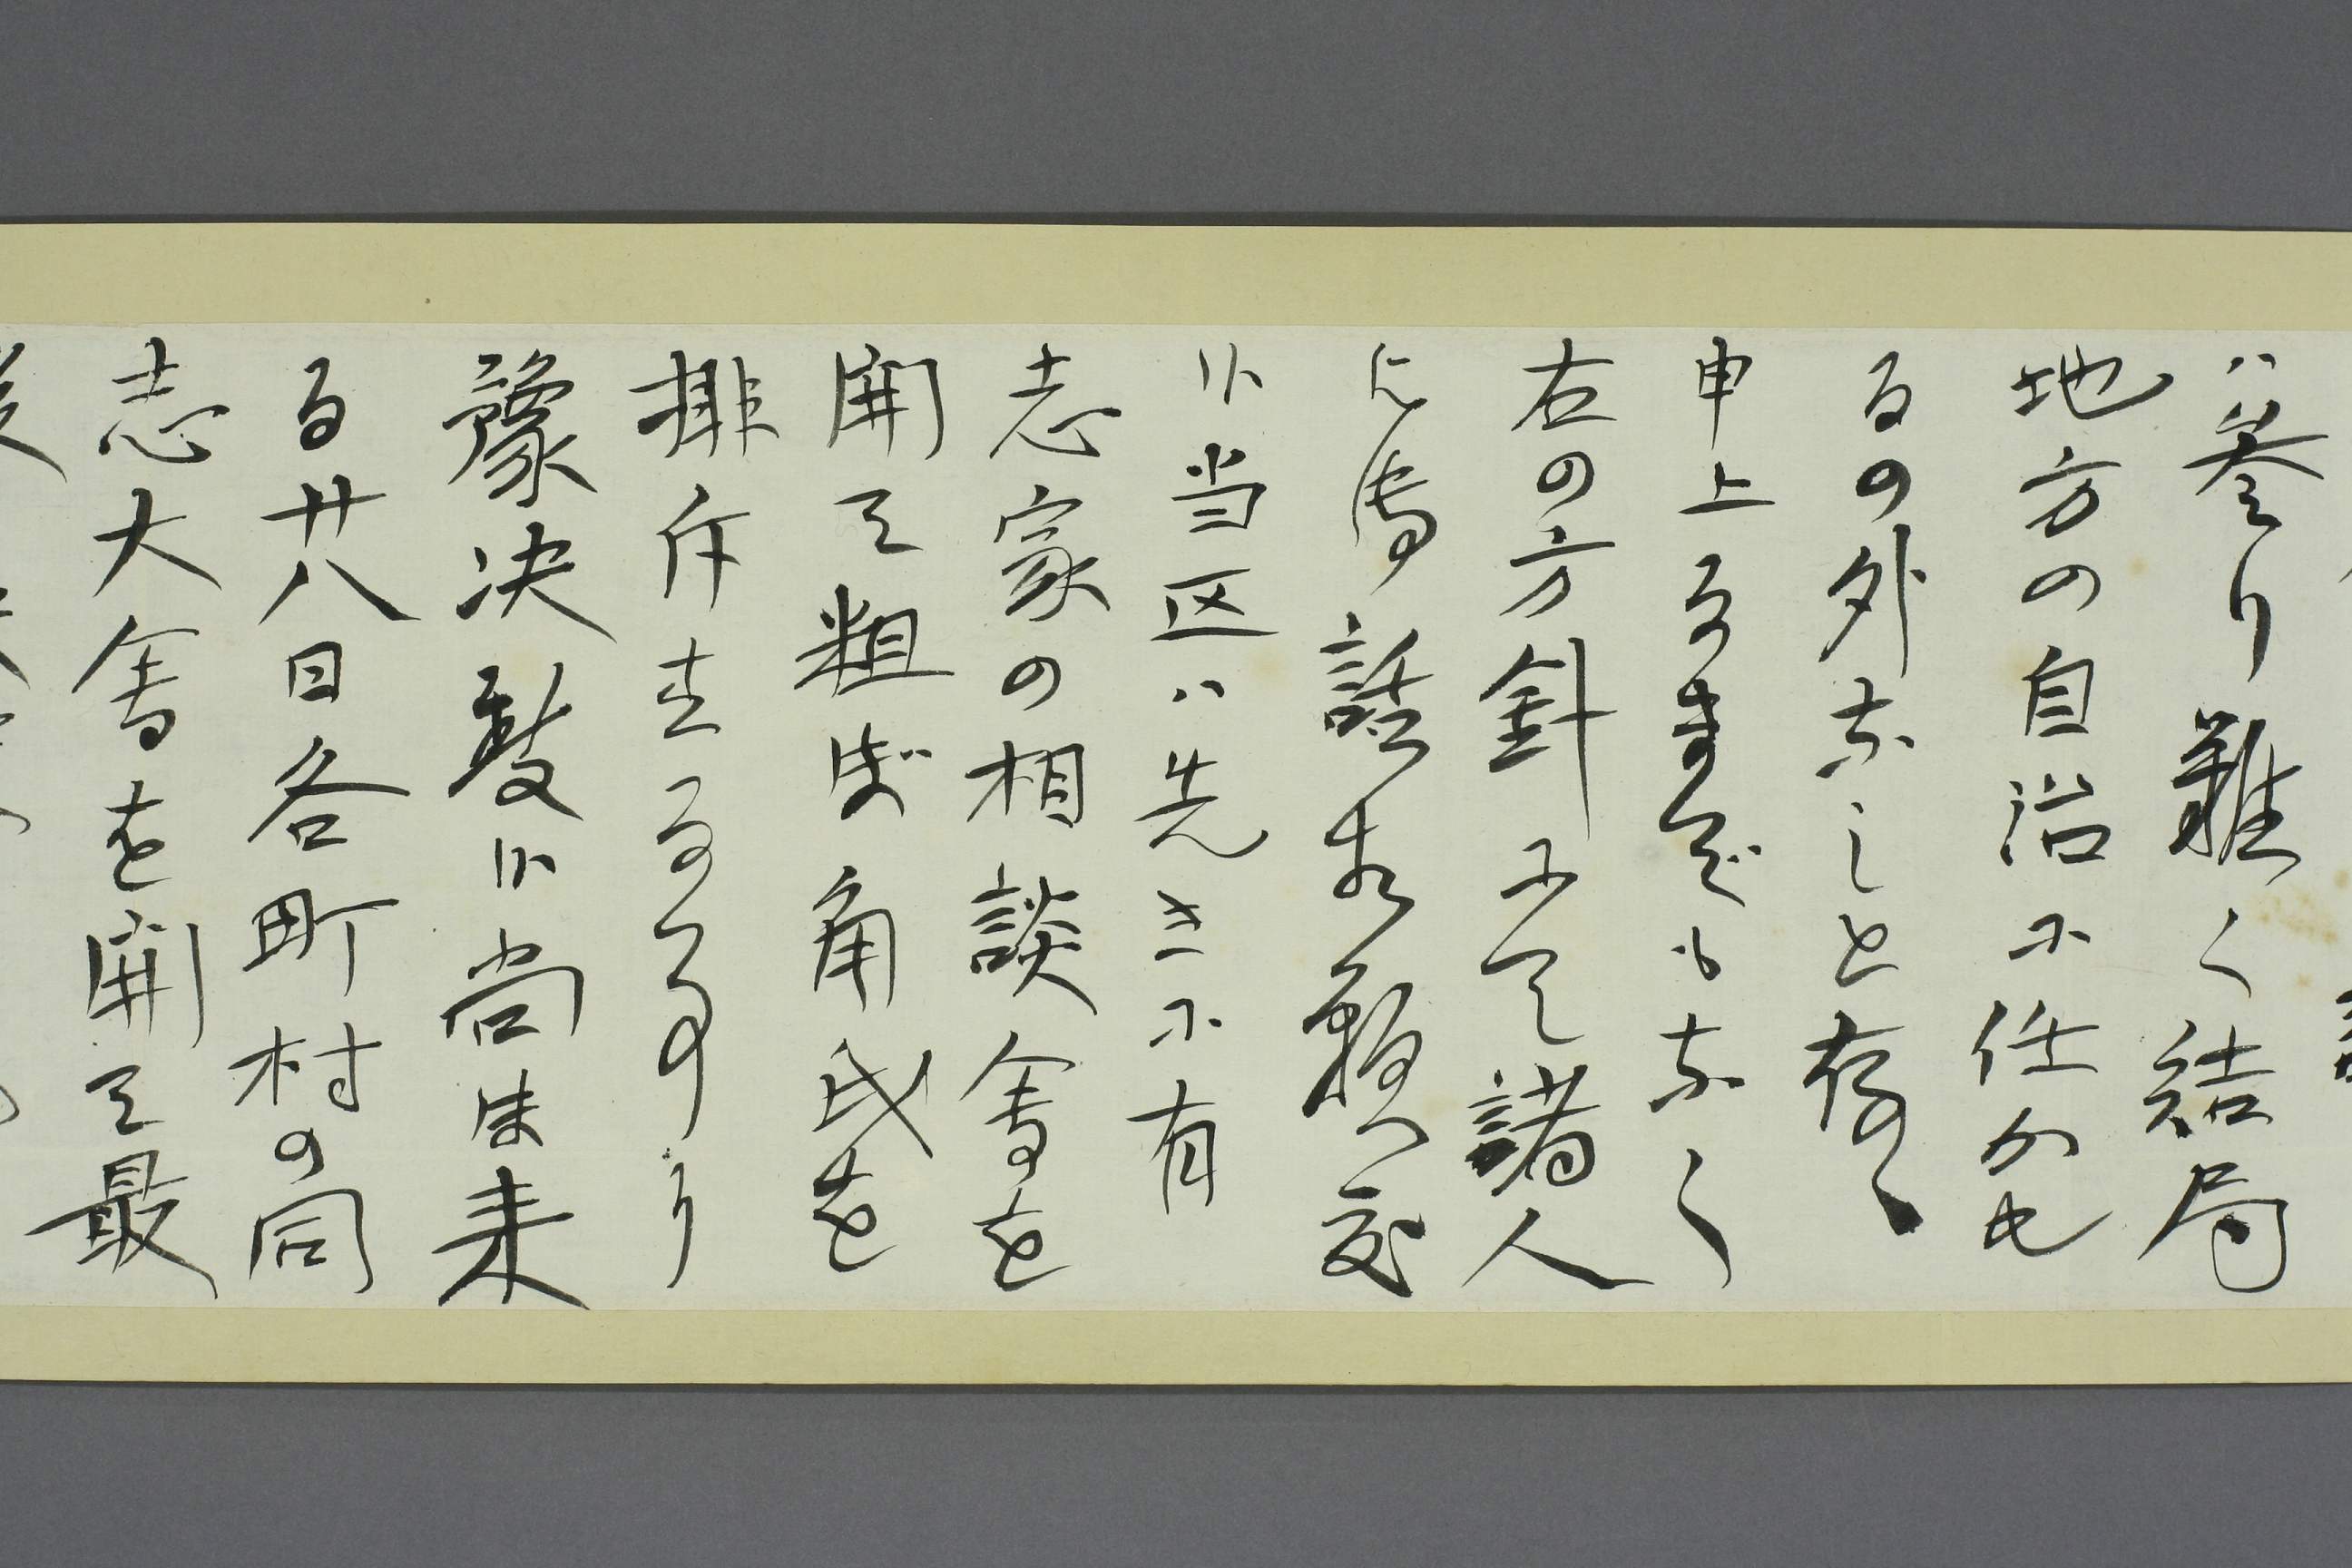 ハ参り難く結局
地方の自治ニ任かせ
るの外なしと存候
申上るまでもなく
右の方針ニて諸人
に御話相願度
候当区ハ先きニ有
志家の相談会を
開て粗ぼ角氏を
排斥することに
豫決致候尚ほ来
る廿八日各町村の同
志大会を開て最